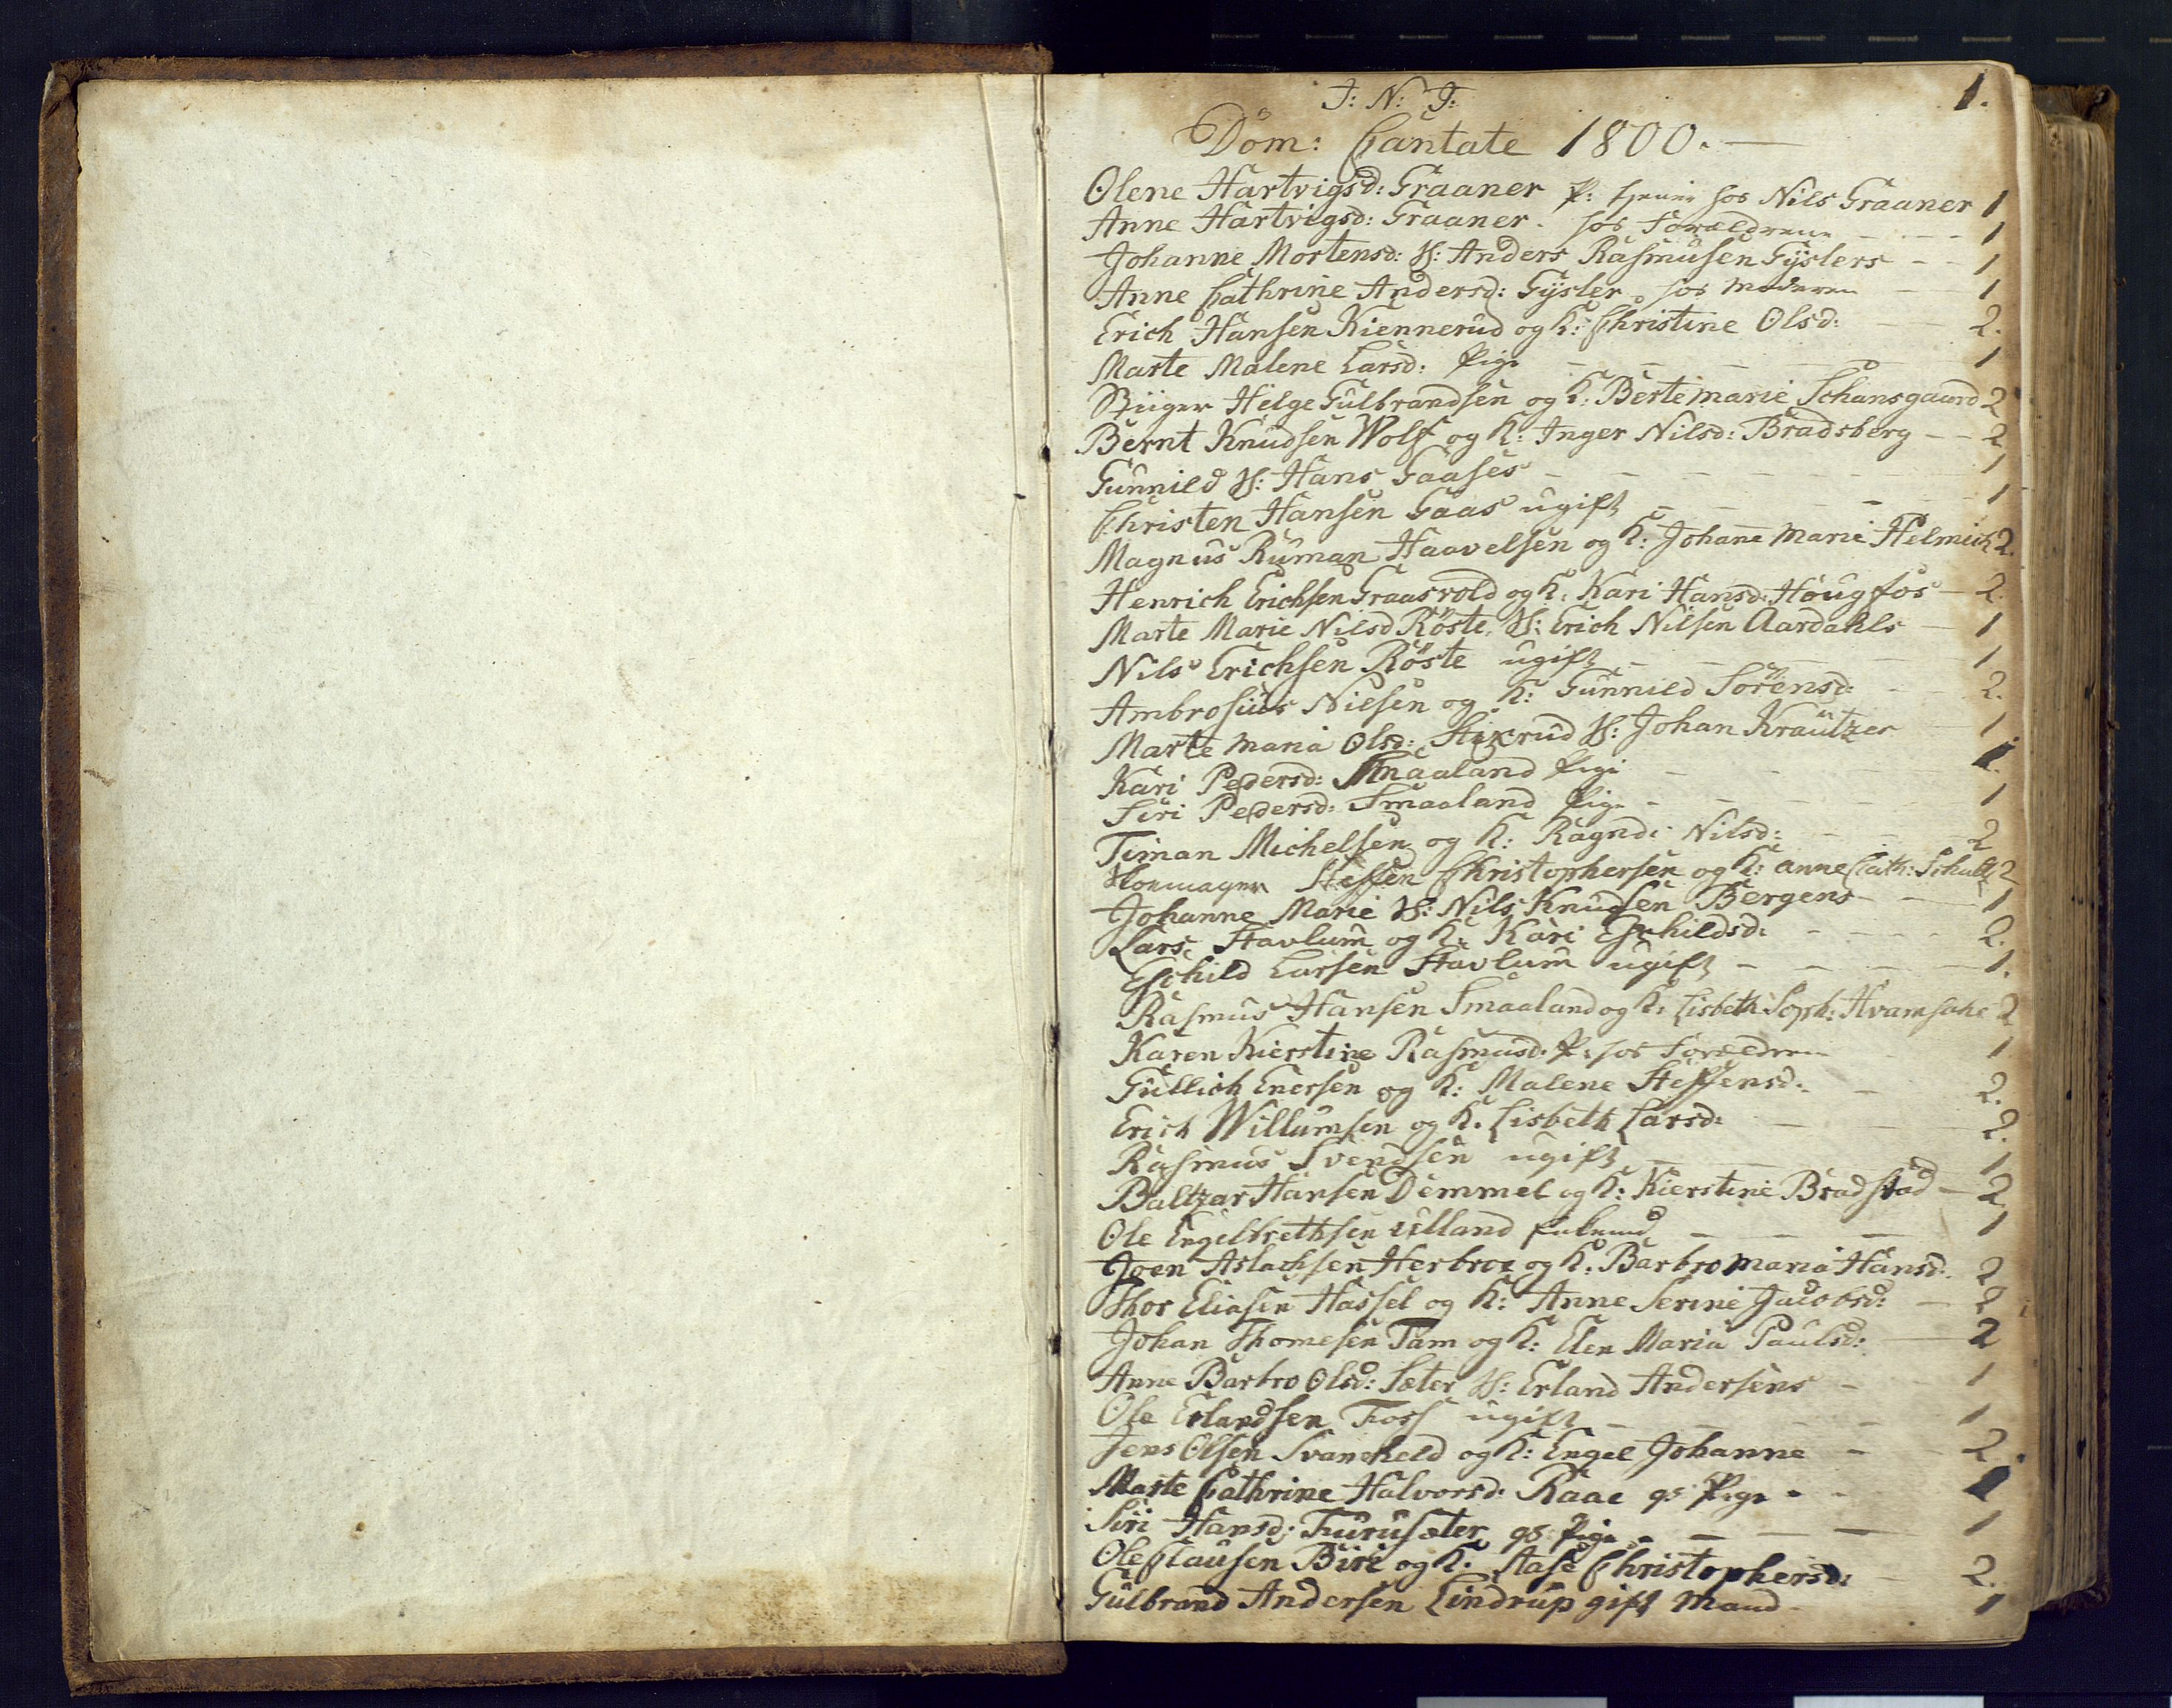 1.
J: N: J:
Dom: Cantate 1800. —
Olene Hartvigsd: Graaner P: tjener hos Nils Graaner 1
Anne Hartvigsd: Graaner. hos Forældrene - - - 1
Johanne Mortensd: H: Anders Rasmusen Gyslers - - 1
Anne Cathrine Andersd: Gysler. hos Moderen - 1
Erich Hansen Kiennerud og K: Christine Olsd: - - 2.
Marte Malene Larsd: Pige - - - - 1
Stiiger Helge Gulbrandsen og K: Bertemarie Schansgaard 2
Bernt Knudsen Wolf og K: Inger Nilsd: Bradsberg - - 2
Gunnild H: Hans Gaases - - - - 1
Christen Hansen Gaas ugift - - - - 1
Magnus Ruman Haavelsen og K: Johane Marie Helmich 2.
Henrich Erichsen Graasvold og K: Kari Hansd: Hougfos - 2.
Marte Marie Nilsd Röste, H: Erich Nilsen Aardahls - 1
Nils Erichsen Röste ugift - - - - 1
Ambrosius Nilsen og K: Gunnild Sörensd: - - 2.
Marte Maria Olsd: Stixrud H: Johan Kräutzer 1
Kari Pedersd: Smaaland Pige - - - 1.
Siri Pedersd: Smaaland Pige - - - 1
Timan Michelsen og K: Ragndi Nilsd: - - - 2
Skoemager Steffen Christophersen og K: Anne Cath: Schult 2
Johanne Marie H: Nils Knudsen Bergens - - 1
Lars Stavlum og K: Kari Eschildsd: - - - - 2.
Eschild Larsen Stavlum ugift - - - - 1.
Rasmus Hansen Smaaland og K: Lisbeth Soph: Hvamsahe 2
Karen Kierstine Rasmusd: P: hos Forældrene - 1
Gullich Enersen og K: Malene Steffensd: - 2.
Erich Willumsen og K. Lisbeth Larsd: - - - 2.
Rasmus Svendsen ugift - - - 1
Baltzar Hansen Demmel og K: Kierstine Bradstad - 2.
Ole Engelbrethsen Ulland - - - 1
Joen Aslachsen Herbroe og K: Barbro Maria Hansd: 2
Thor Eliasen Hassel og K: Anne Serine Jacobsd: - 2
Johan Thomesen Tam og K: Elen Maria Paulsd: - 2
Anne Barbro Olsd: Sæter H: Erland Andersens - 1
Ole Erlandsen Foss ugift - - - - 1
Jens Olsen Svaneheld og K: Engel Johanne - - 2.
Marte Cathrine Halvorsd: Raae gs Pige - - 1
Siri Hansd: Furusæter gs: Pige - - - - 1
Ole Clausen Biri og K. Aase Christophersd: - 2.
Gulbrand Andersen Lindrup gift Mand - 1